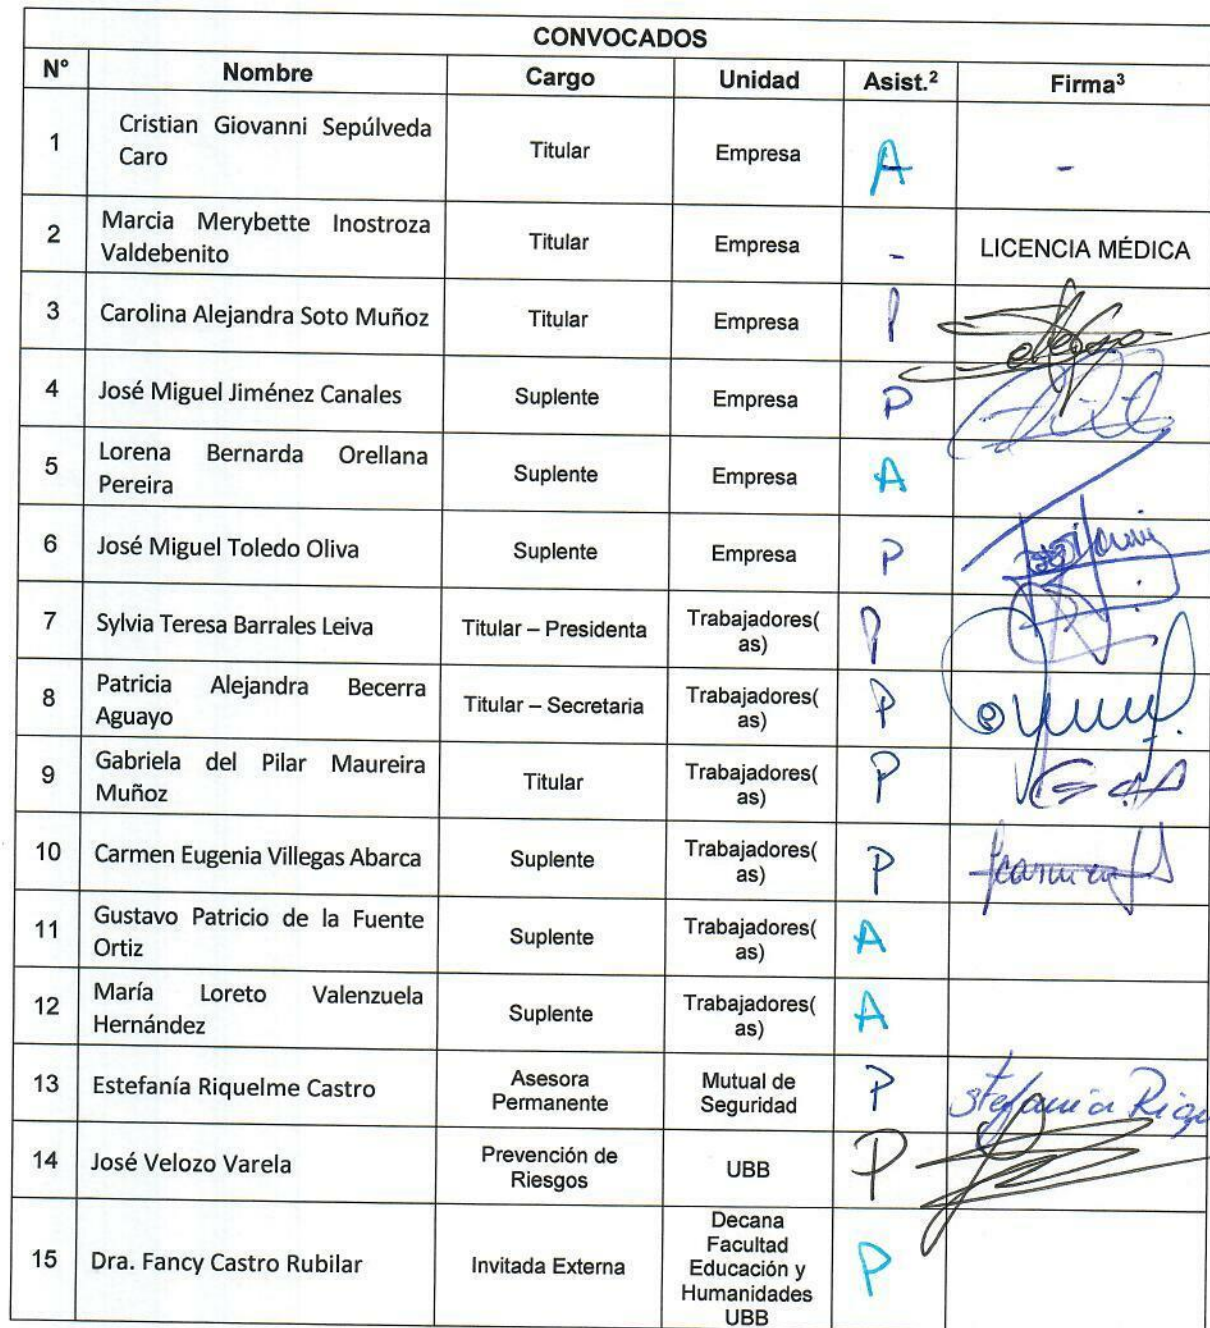 CONVOCADOS
N° Nombre Cargo Unidad Asist.² Firma³
1 Cristian Giovanni Sepúlveda Caro Titular Empresa A -
2 Marcia Merybette Inostroza Valdebenito Titular Empresa - LICENCIA MÉDICA
3 Carolina Alejandra Soto Muñoz Titular Empresa P
4 José Miguel Jiménez Canales Suplente Empresa P
5 Lorena Bernarda Orellana Pereira Suplente Empresa A
6 José Miguel Toledo Oliva Suplente Empresa P
7 Sylvia Teresa Barrales Leiva Titular – Presidenta Trabajadores(as) P
8 Patricia Alejandra Becerra Aguayo Titular – Secretaria Trabajadores(as) P
9 Gabriela del Pilar Maureira Muñoz Titular Trabajadores(as) P
10 Carmen Eugenia Villegas Abarca Suplente Trabajadores(as) P
11 Gustavo Patricio de la Fuente Ortiz Suplente Trabajadores(as) A
12 María Loreto Valenzuela Hernández Suplente Trabajadores(as) A
13 Estefanía Riquelme Castro Asesora Permanente Mutual de Seguridad P
14 José Velozo Varela Prevención de Riesgos UBB P
15 Dra. Fancy Castro Rubilar Invitada Externa Decana Facultad Educación y Humanidades UBB P